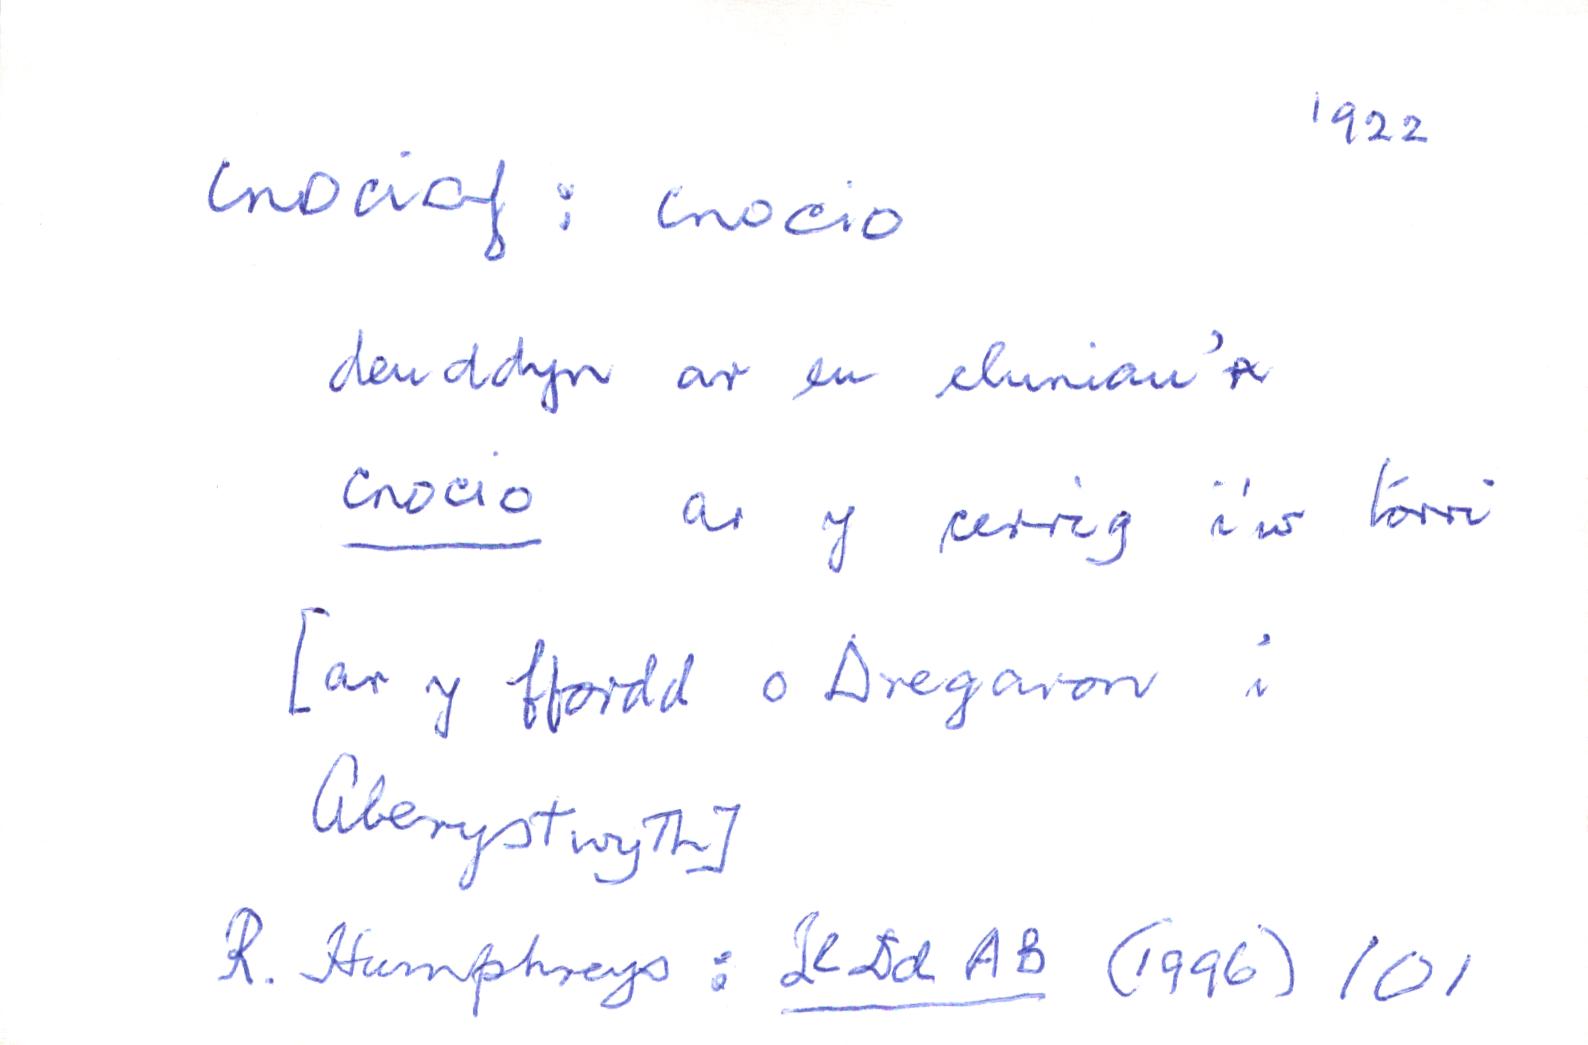 1922
cnociaf : cnocio
deuddyn ar eu cluniau'n
cnocio ar y cerrig i'w torri
[ar y ffordd o Dregaron i
Aberystwyth]
R. Humphreys : Ll Dd AB (1996) 101